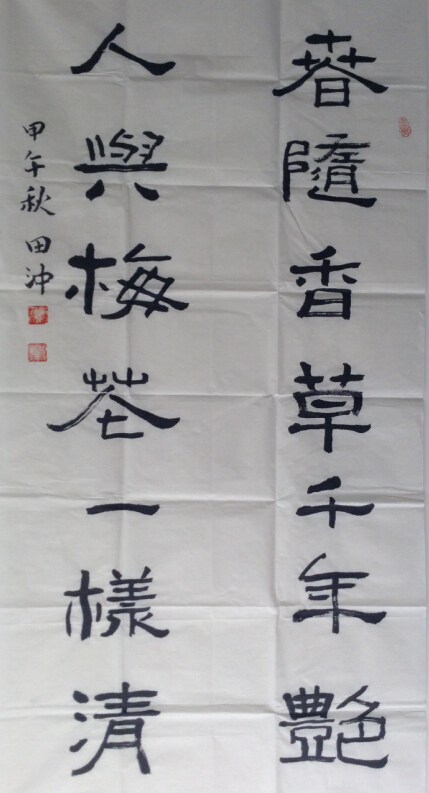 春隨香草千年艷
人與梅花一樣清
甲午秋 田沖